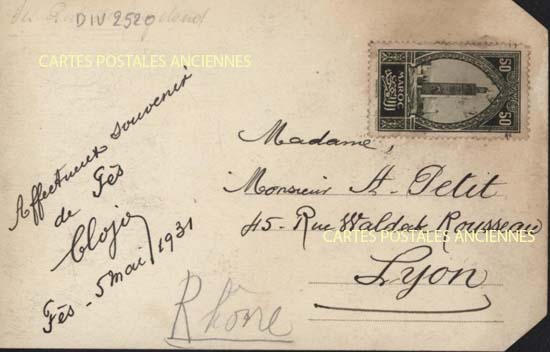 DIV 2520
CARTES POSTALES ANCIENNES
50 MAROC 50
Affectueux souvenir
de Fès
Fès - 5 mai 1931
Madame,
Monsieur A. Petit
45 - Rue Waldeck Rousseau
CARTES POSTALES ANCIENNES
Lyon
Rhône